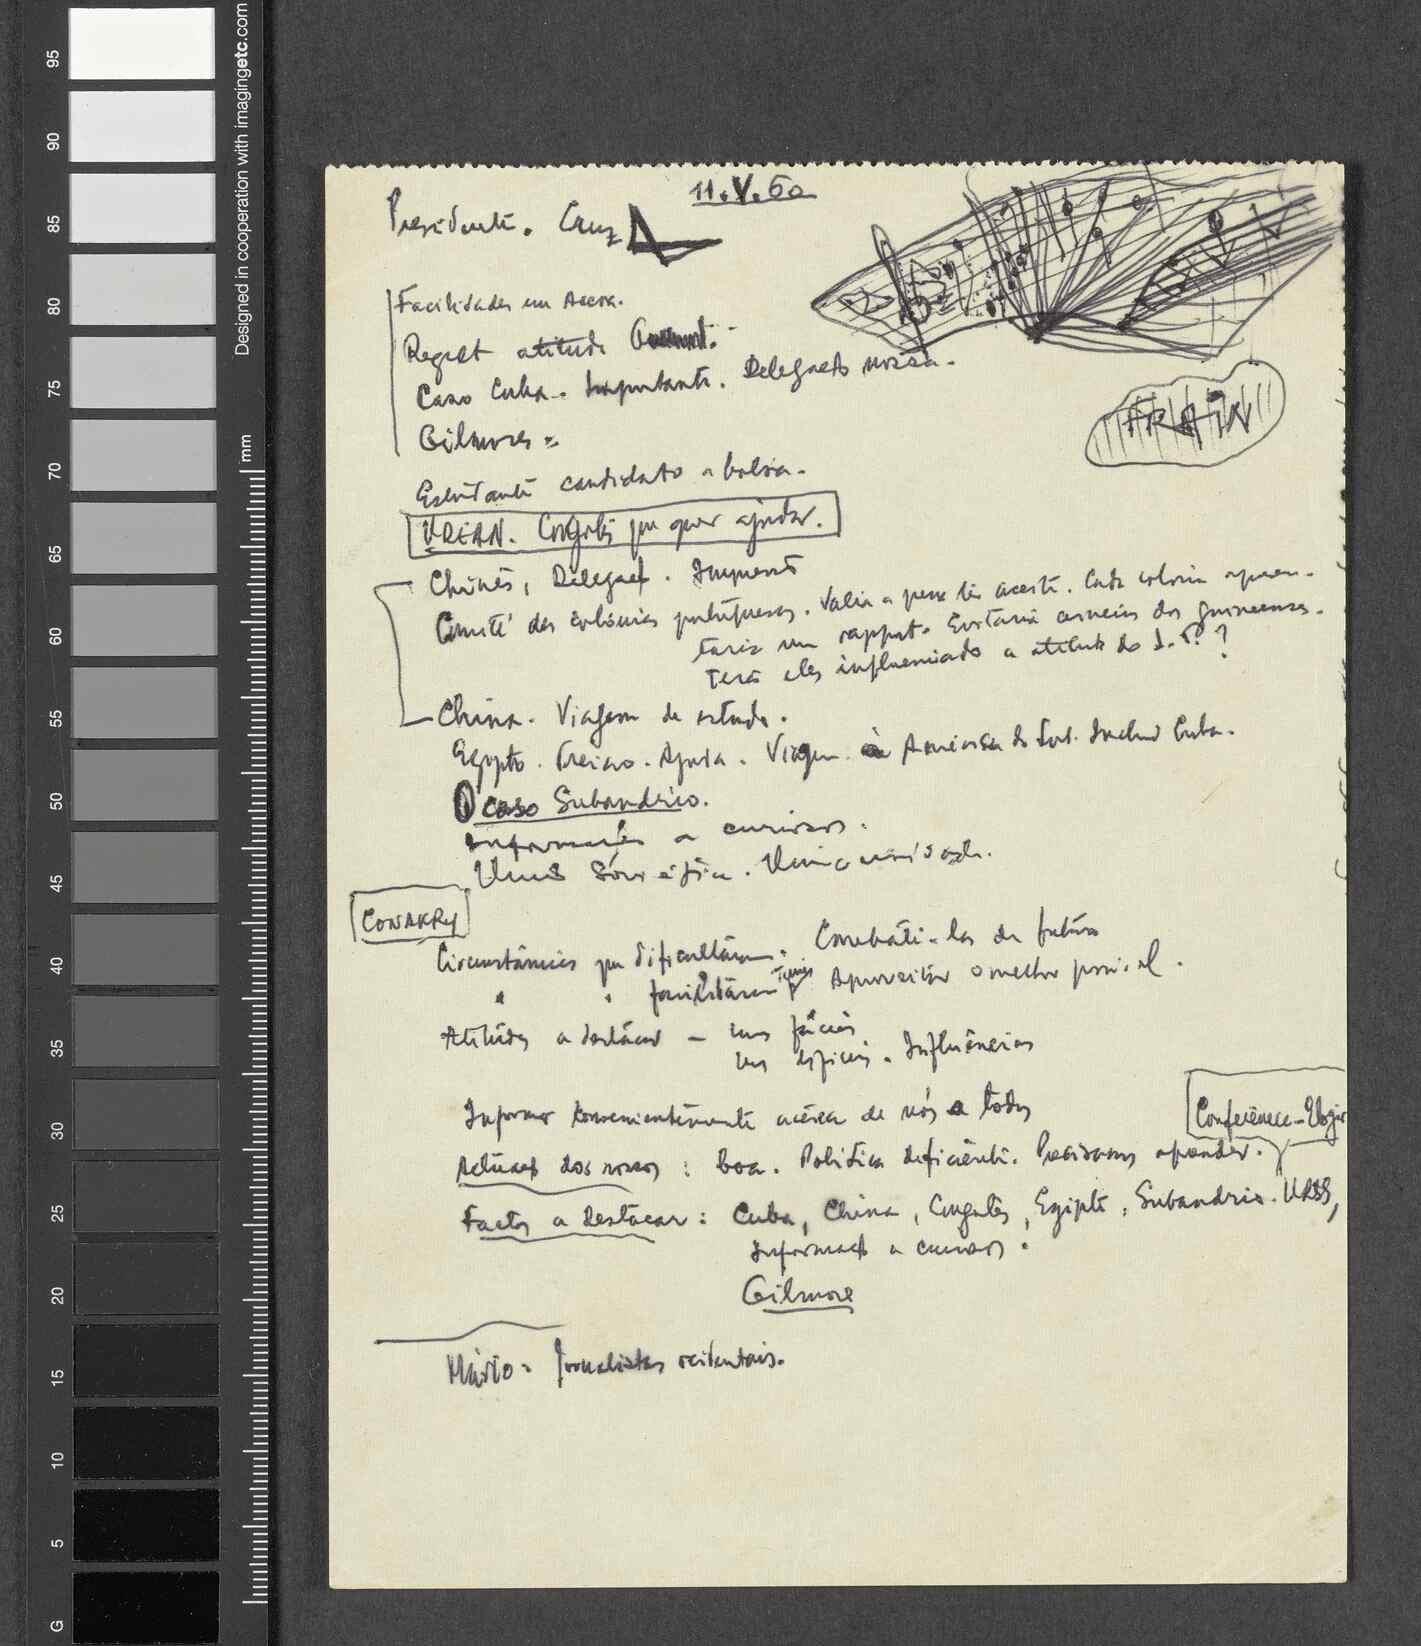 11.V.60
Presidente. Cruz
Facilidades em Accra.
Regist atitude
Caso Cuba. Importante. Delegação nossa.
Gilmore.
Estudante candidato a bolsa.
UREAN. Congolês que quer ajudar.
Chinês, Delegaç. Imprensa
Comité das colónias portuguesas. Valia a pena ter aceite. Cada colónia apresen-
taria um rapport. Evitaria
Terá eles influenciado a atitude do J. P. ?
China. Viagem de estudo.
Egypto. Treino. Ajuda. Viagem à América do Sul. Inclui Cuba.
O caso Subandrio.
Informações a curiosos.
União Soviética.
CONAKRY
Circunstâncias que dificultaram. Combatê-las de futuro
" " facilitaram Aproveitar o melhor possível.
Atitudes a destacar — uns fáceis
uns difíceis. Influências
Informar convenientemente acerca de nós a todos
Conference-Elogio
Actuação dos nossos : boa. Política deficiente. Precisamos aprender.
Factos a destacar : Cuba, China, Congolês, Egipto, Subandrio. URSS,
Informaçõ a curiosos.
Gilmore
Mário = Jornalistas ocidentais.
95
90
85
80
75
70
65
60
55
50
45
40
35
30
25
20
15
10
5
G
mm
Designed in cooperation with imagingetc.com